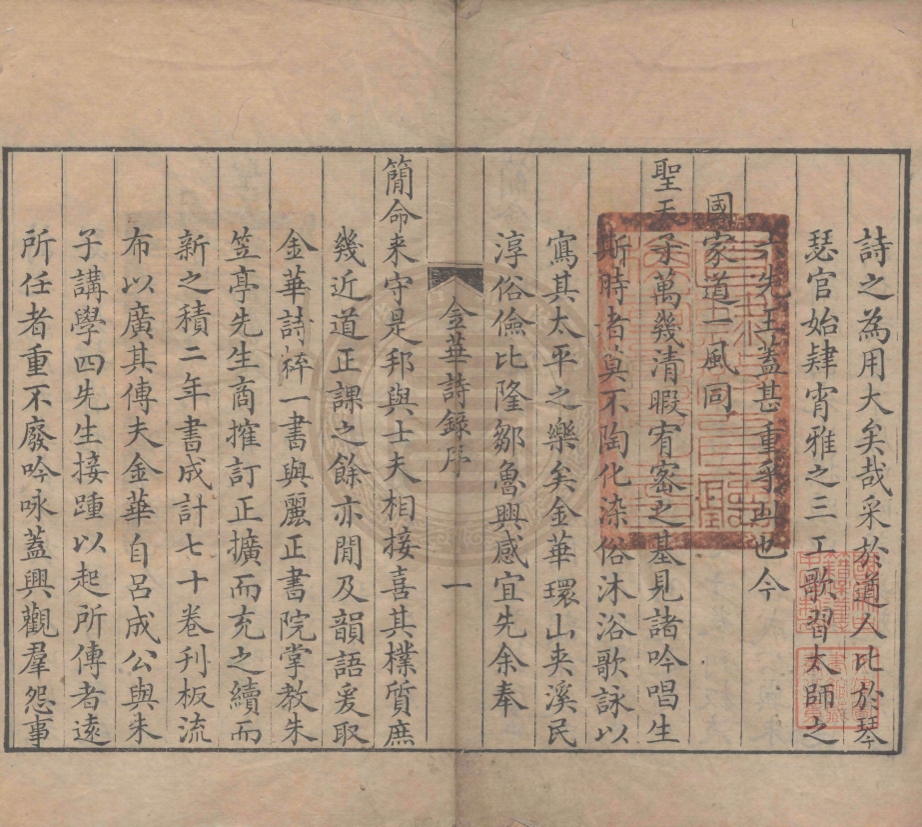 詩之為用大矣哉采於遒人比於琴
瑟官始肄宵雅之三工歌習太師之
六先王蓋甚重乎此也今
國家道一風同
聖天子萬幾清暇宥密之基見諸吟唱生
斯時者莫不陶化染俗沐浴歌詠以
寫其太平之樂矣金華環山夾溪民
淳俗儉比隆鄒魯興感宜先余奉
金華詩錄序
一
簡命来守是邦與士夫相接喜其樸質庶
幾近道正課之餘亦間及韻語爰取
金華詩稡一書與麗正書院掌教朱
笠亭先生商搉訂正擴而充之續而
新之積二年書成計七十卷刊板流
布以廣其傳夫金華自呂成公與朱
子講學四先生接踵以起所傳者遠
所任者重不廢吟咏蓋興觀羣怨事